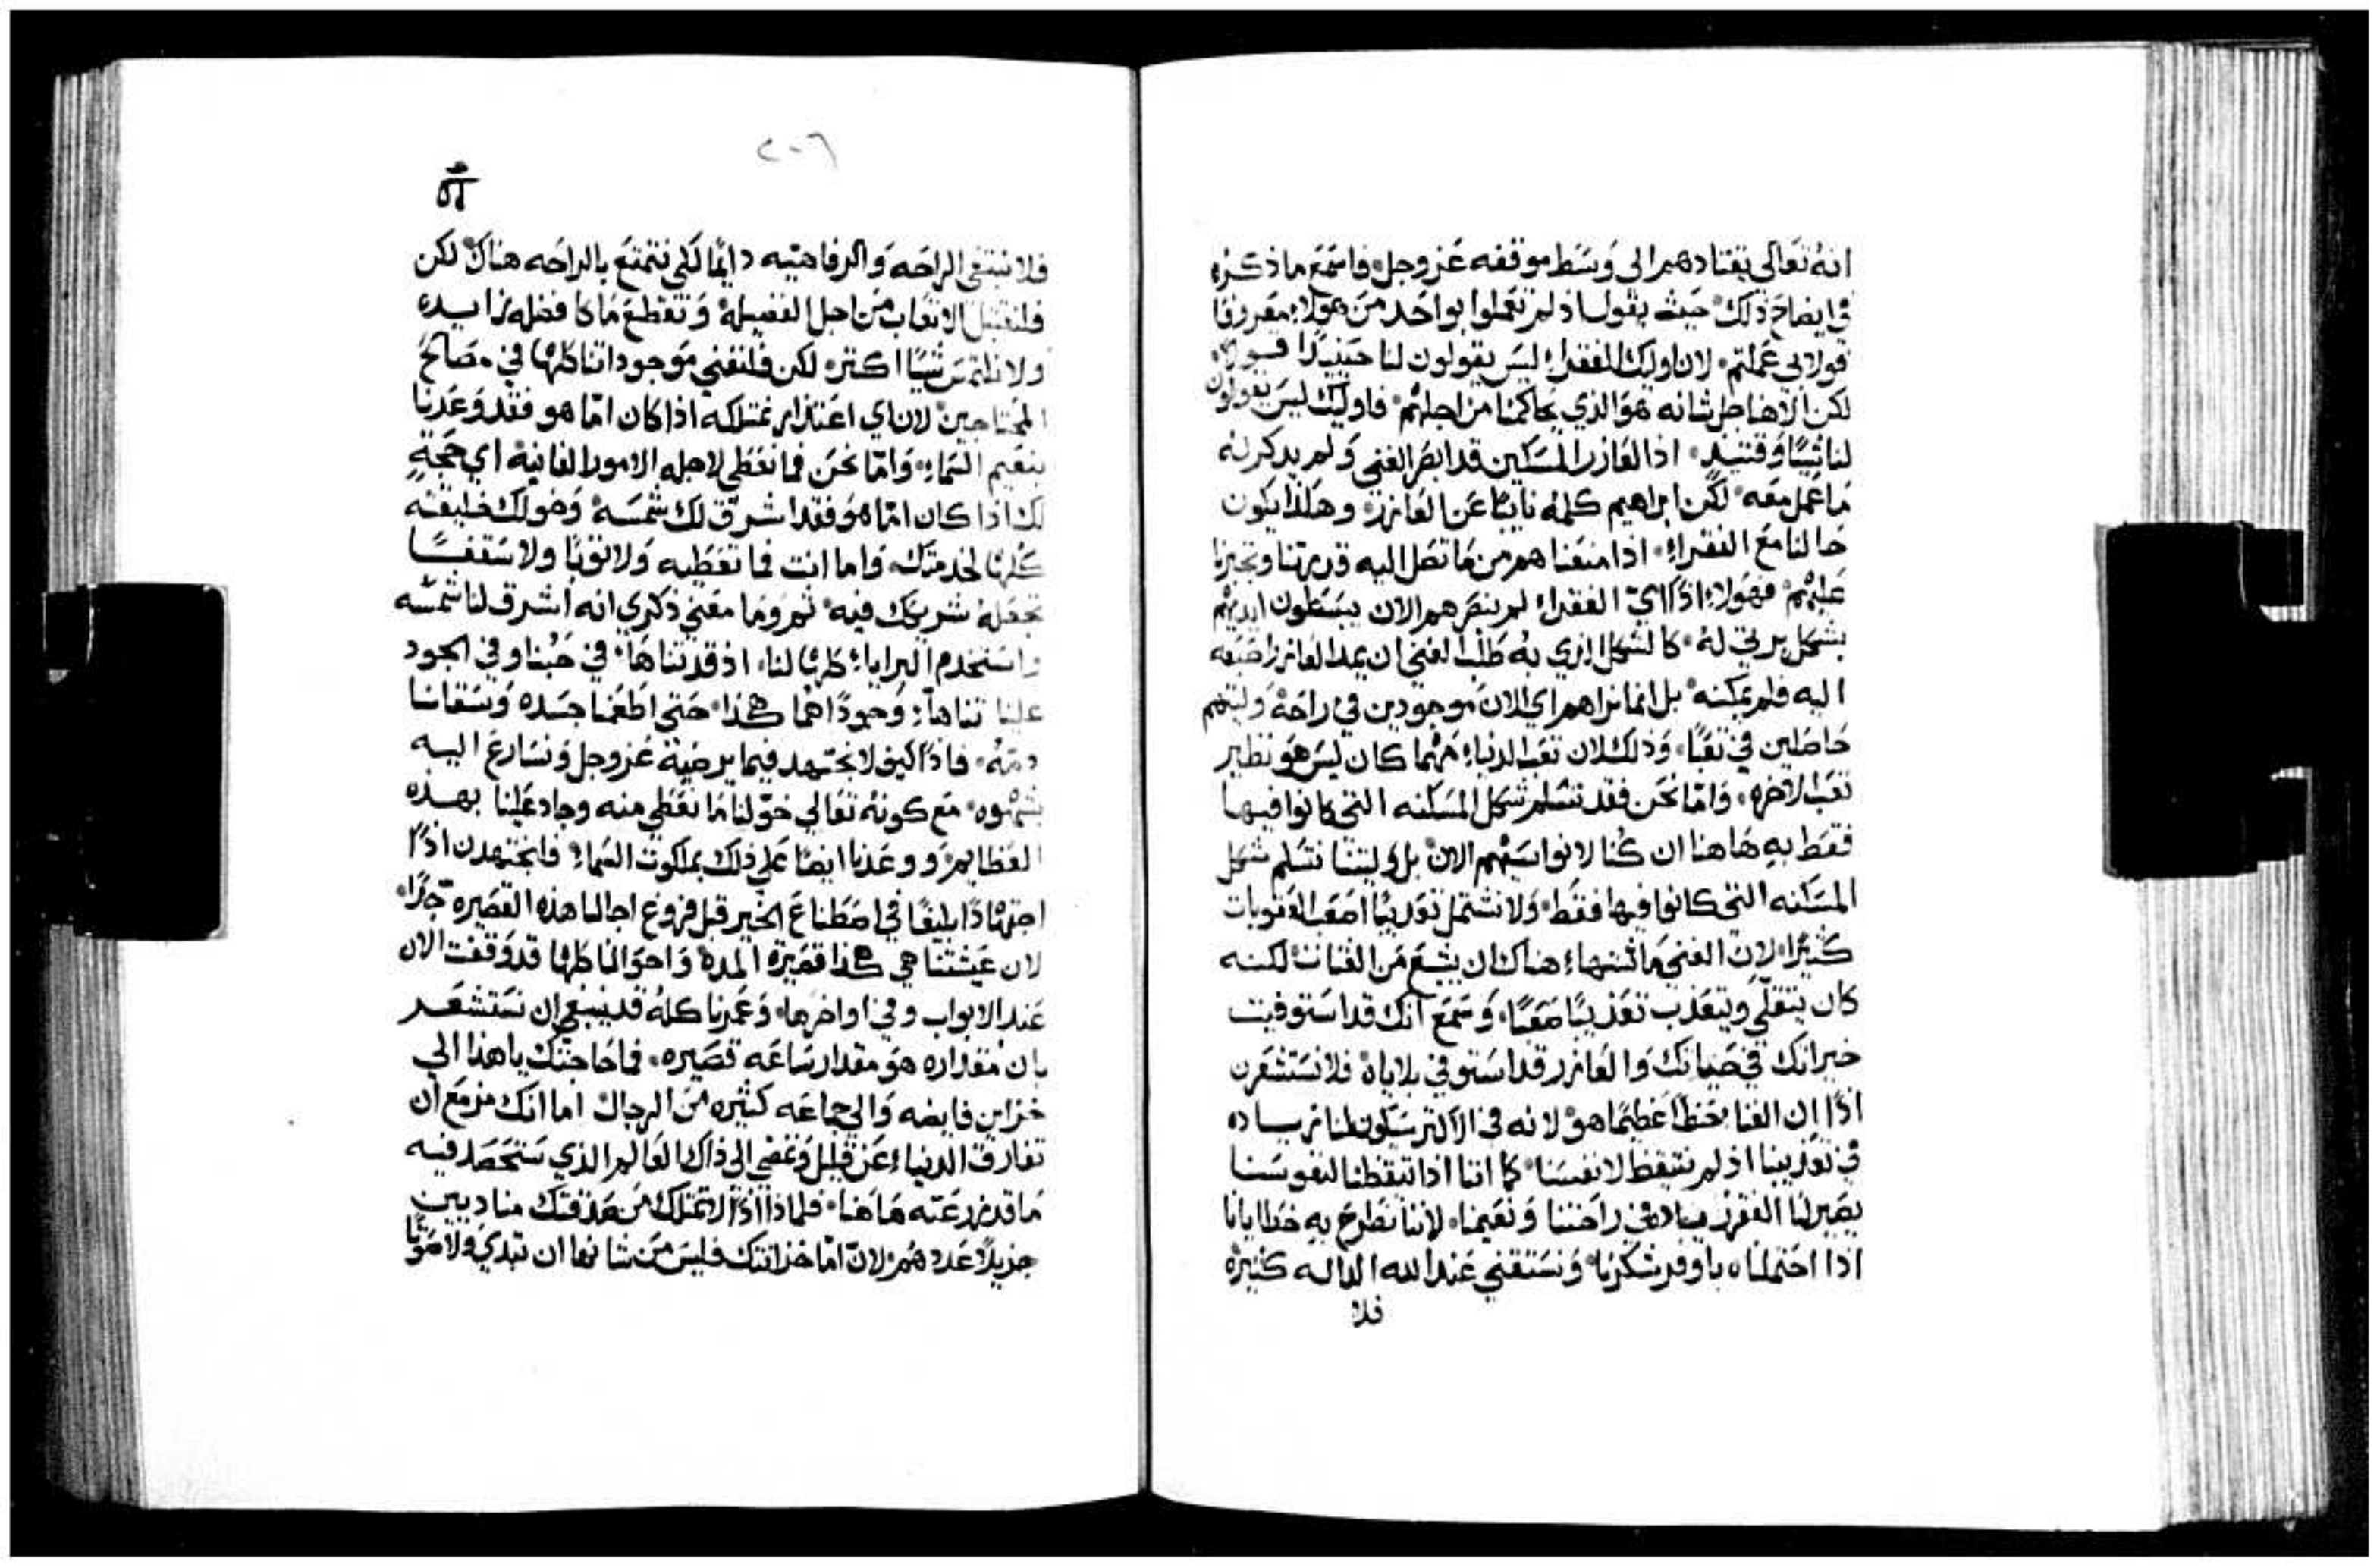 انهُ تعَالي يقتادهم الى وَسَط موقفه عَز وجل فاسَمَع ماذكره
في ايضاح ذلك حَيث يقول اذ لم تعملوا بواحَد من هولاء معروفا
فولا بي عَملتم لان اوليك الفقراء ليسَ يقولون لنا حَينيدًا قولاً
لكن الاهنا جل شانه هوَ الذي يحاكمنا من اجلهم فاوليك ليسَ يقولون
لنا شيئًا وَقتئيدٍ اذ العَازر المسَكين قد ابصَر الغني وَلم يدكر له
مَا عَمل معَه لكن ابراهيم كلمهُ نايبًا عَن العَازر وهكذا يكون
حَالنا معَ الفقراءِ اذا منعَناهم من مَا تصَل اليه قدرتنا وتجبرنا
عَليهم فهَولاء اذًا ايّ الفقراء لم ينصَرهم الان يبسَطون ايديهم
بشكل يرتي لهُ كالشكل الذي بهُ طلب الغني ان يمد العَازر اصَبعَه
اليه فلم يمكنه بل انما نراهم اي الان موجودين في راحَة وَليتهم
حَاصَلين في تعَبًا وَذلك لان تعَب الدنياء مَهما كان ليسَ هَو نظير
تعَب الاخره وَامّا نحَن فقد نتسَلم شكل المسَكنه التي كانوا فيها
فقَط بهِ هَاهنا ان كُنا لا نواسَيهم الان بل وَليتنا نتسَلم شكل
المسَكنه التي كانوا فيها فقَط وَلا نشتمل تعَديبًا اصَعَب العَقوبات
كثيرًا لانّ الغني مَا اشتهاء هناك ان يشبعَ مَن الفتات لكنه
كان يتقلّي ويتعَذب تعَذيبًا صَعَبًا وَسَمَع انك قد اسَتوفيت
خيراتك في حَياتك وَالعَازر قد اسَتوفي بلاياهُ فلا نسَتشعَرن
اذًا ان الغنا حَظًا عَظيمًا هوَ لانه في الاكتر سَيكون لنا زياده
في تعَذيبنا اذ لم نتيقظ لانفسَنا كما اننا اذا تيقظنا لنفوسَنا
يصَير لنا الفقر زياده في راحَتنا وَنعَيمنا لاننا نطرحَ بهِ خطايانا
اذا احَتملناه باوفر شكرنا وَنسَتغني عَند الله الداله كثيرة
فلا
٢٠٦
فلا نبتغي الراحَه وَالرفاهيَه دايمًا لكي نتمتعَ بالراحَه هناك لكن
فلنقتبل الاتعَاب مَن اجل الفضيلة وَنقطعَ مَا كا فضله زايده
ولا نلتمسَ شيًا اكتر لكن فلنفني مَوجوداتنا كلها في مصَالحَ
المحَتاجين لان اي اعَتذار نمتلكه اذا كان امّا هو فقد وَعَدنا
بنعَيم السَماءِ وَامّا نحَن فما نعَطي لاجله الامور الفانية اي حَجةٍ
لك اذا كان امّا هوَ فقد اشرق لك شمسَهُ وَخولك خليقته
كلها لخدمتك وَاما انت فما تعَطيه وَلا ثوبًا ولا سَقفًا
تجعَلهُ شريكك فيه ثم وَما معَني ذكري انه اشرق لنا شمسَه
واسَتخدم البرايا كلها لنا اذ قد تناهَا في حَبنا وفي الجود
عَلينا تناهًا وَجودًا هما هكذا حَتي اطعَمنا جسَده وَسَقانا
دمَهُ فاذًا كيف لا نجتهد فيما يرضَيه عَز وجل وَنسَارعَ اليه
بشهوه مَع كونهُ تعَالي خوّلنا مَا نعَطي منه وجاد عَلينا بهذه
العَظايم وَوعَدنا ايضًا عَلي ذلك بملكوت السَماءِ فلنجتهدن اذًا
اجتهادًا بليغًا في اصَطناعَ الخير قبل فروغ اجالنا هذه القصَيرة جدًا
لان عَيشتنا هي هكذا قصَيرة المدة وَاحوَالنا كلها قد وَقفت الان
عَند الابواب وفي اواخرها وَعَمرنا كلهُ قد ينبغي ان نسَتشعَر
بان مقداره هوَ مقدار سَاعَه قصَيره فما حَاجتك ياهذا الي
خزاين فايضه وَالي جماعَه كثيره مَن الرجال اما انك مزمَع ان
تفارق الدنياء عَن قليل وَتمضي الى ذاك العَالم الذي سَتحَصَد فيه
مَا قد زرعَته هَاهنا فلماذا اذًا لا تمتلك مَن صَدقتك مناديين
جزيلاً عَددهُم لانّ امّا خزانتك فليسَ مَن شانها ان تبدي وَلا صَوتًا